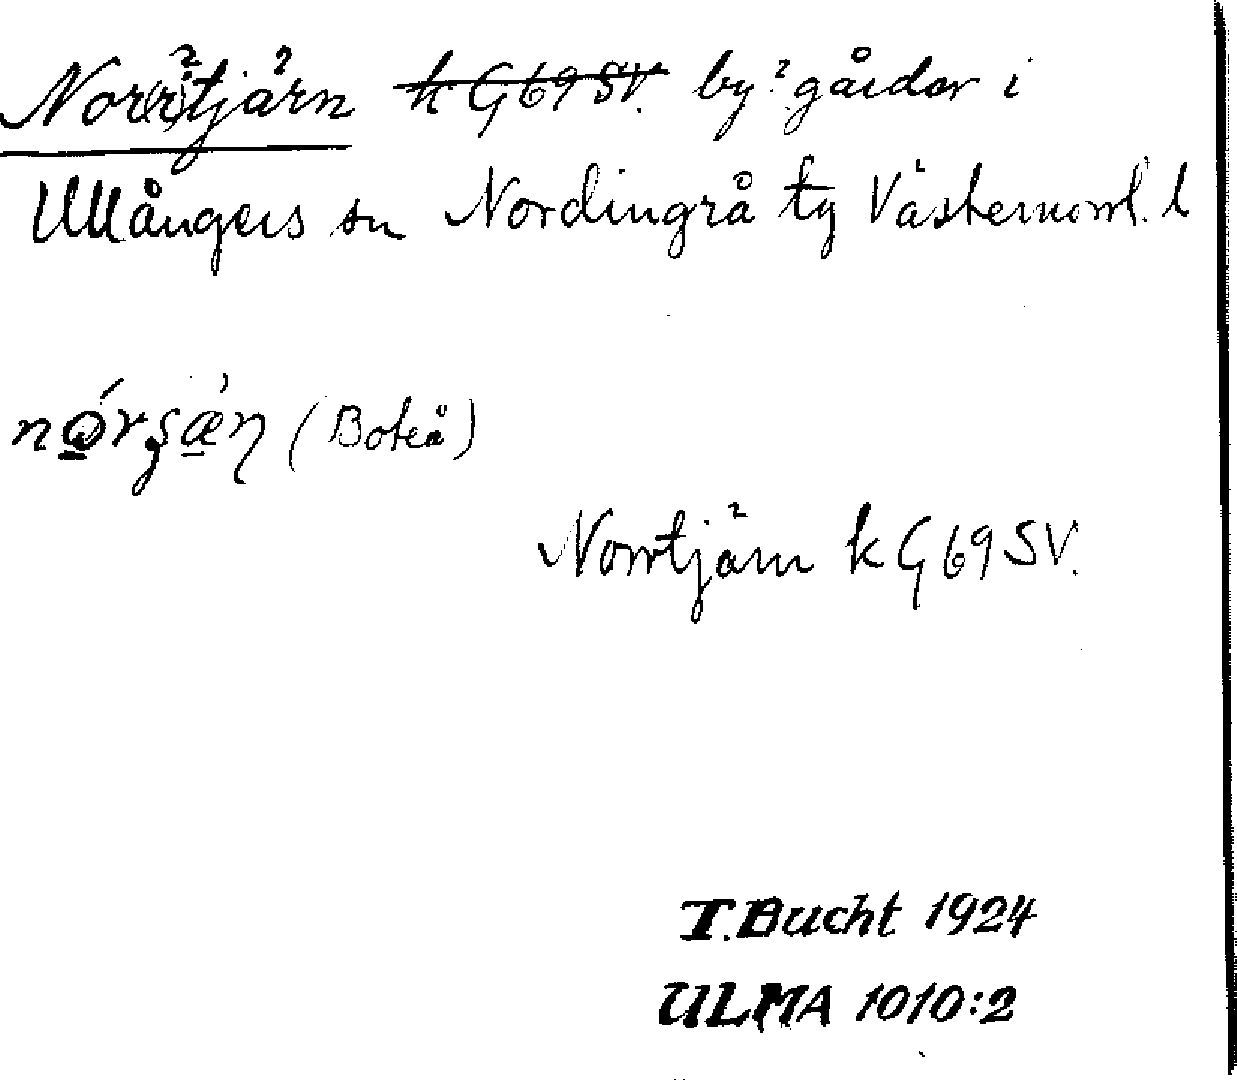 Norrtjärn k G69SV. by? gårdar i
Ullångers sn Nordingrå tg Västernorrl. l
nǫ́rʂæ̀ɳ (Boteå)
Norrtjärn k G69SV.
T. Bucht 1924
ULMA 1010:2